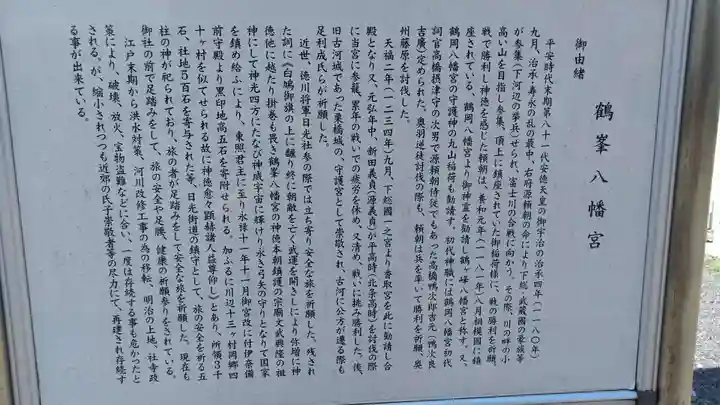 鶴峯八幡宮
御由緒
平安時代末期第八十一代安徳天皇の御宇治の治承四年(一一八〇年)
九月、治承・寿永の乱の最中、右府源頼朝の命により下総・武蔵国の豪族等
が参集(下河辺の挙兵)せられ、富士川の合戦に向かう。その際、川の畔の小
高い山を目指し参集、頂上に鎮座されていた御稲荷様に、戦の勝利を祈願、
戦で勝利し神徳を感じた頼朝は、養和元年(一一八一年)八月相模国に鎮
座されている、鶴岡八幡宮より御神霊を勧請し鶴ヶ峰八幡宮と称す。又、
鶴岡八幡宮の守護神の丸山稲荷も勧請す。初代神職には鶴岡八幡宮初代
詞官高橋摂津守の次男で源頼朝侍従でもあった高橋鴨次郎吉元(鴨次良
吉廣)定められた。奥羽逆徒討伐の際も、頼朝は兵を率いて勝利を祈願、奥
州藤原を討伐した。
天福二年(一二三四年)九月、下総國一之宮より香取宮を此に勧請し合
殿となり、又、元弘年中、新田義貞(源義貞)が平高時(北条高時)を討伐の際
に当宮に参籠、累年の戦いでの疲労を休め、又清め、戦いに挑み勝利した。後、
旧古河城であった栗橋城の、守護宮として崇敬され、古河に公方が遷る際も
足利成氏らが祈願した。
近世、徳川将軍日光社参の際では立ち寄り安全な旅を祈願した。残され
た詞に《白鳩御旗の上に翻り終に朝敵を亡く武運を開さしにより弥増に神
徳他に越たり掛巻も畏き鶴峯八幡宮の神徳本朝鎮護の宗廟文武興隆の祖
神にして神光四方にたなび神威宇宙に輝けり永き弓矢の守りとなりて国家
を鎮め給ふにより、東照君主に至り永禄十一年十一月御宮改に付伊奈備
前守殿より黒印地高五石を寄附せられる。加ふるに川辺十三ヶ村岡郷四
十ヶ村を似てせられる故に神徳愈々顕赫諸人益尊仰し》とあり、所領3千
石、社地5百石を寄与された等、日光街道の鎮守として、旅の安全を祈る五
柱の神が祀られており、旅の者が足踏みをして安全な旅を祈願した。現在も
御社の前で足踏みをして、旅の安全や足腰、健康の祈願参りをされている。
江戸末期から洪水対策、河川改修工事の為の移転、明治の上地、社寺政
策により、破壊、放火、宝物盗難などに合い、一度は存続する事も危かったと
される、が、縮小されつつも近郊の氏子崇敬者等の尽力にて、再建され存続す
る事が出来ている。